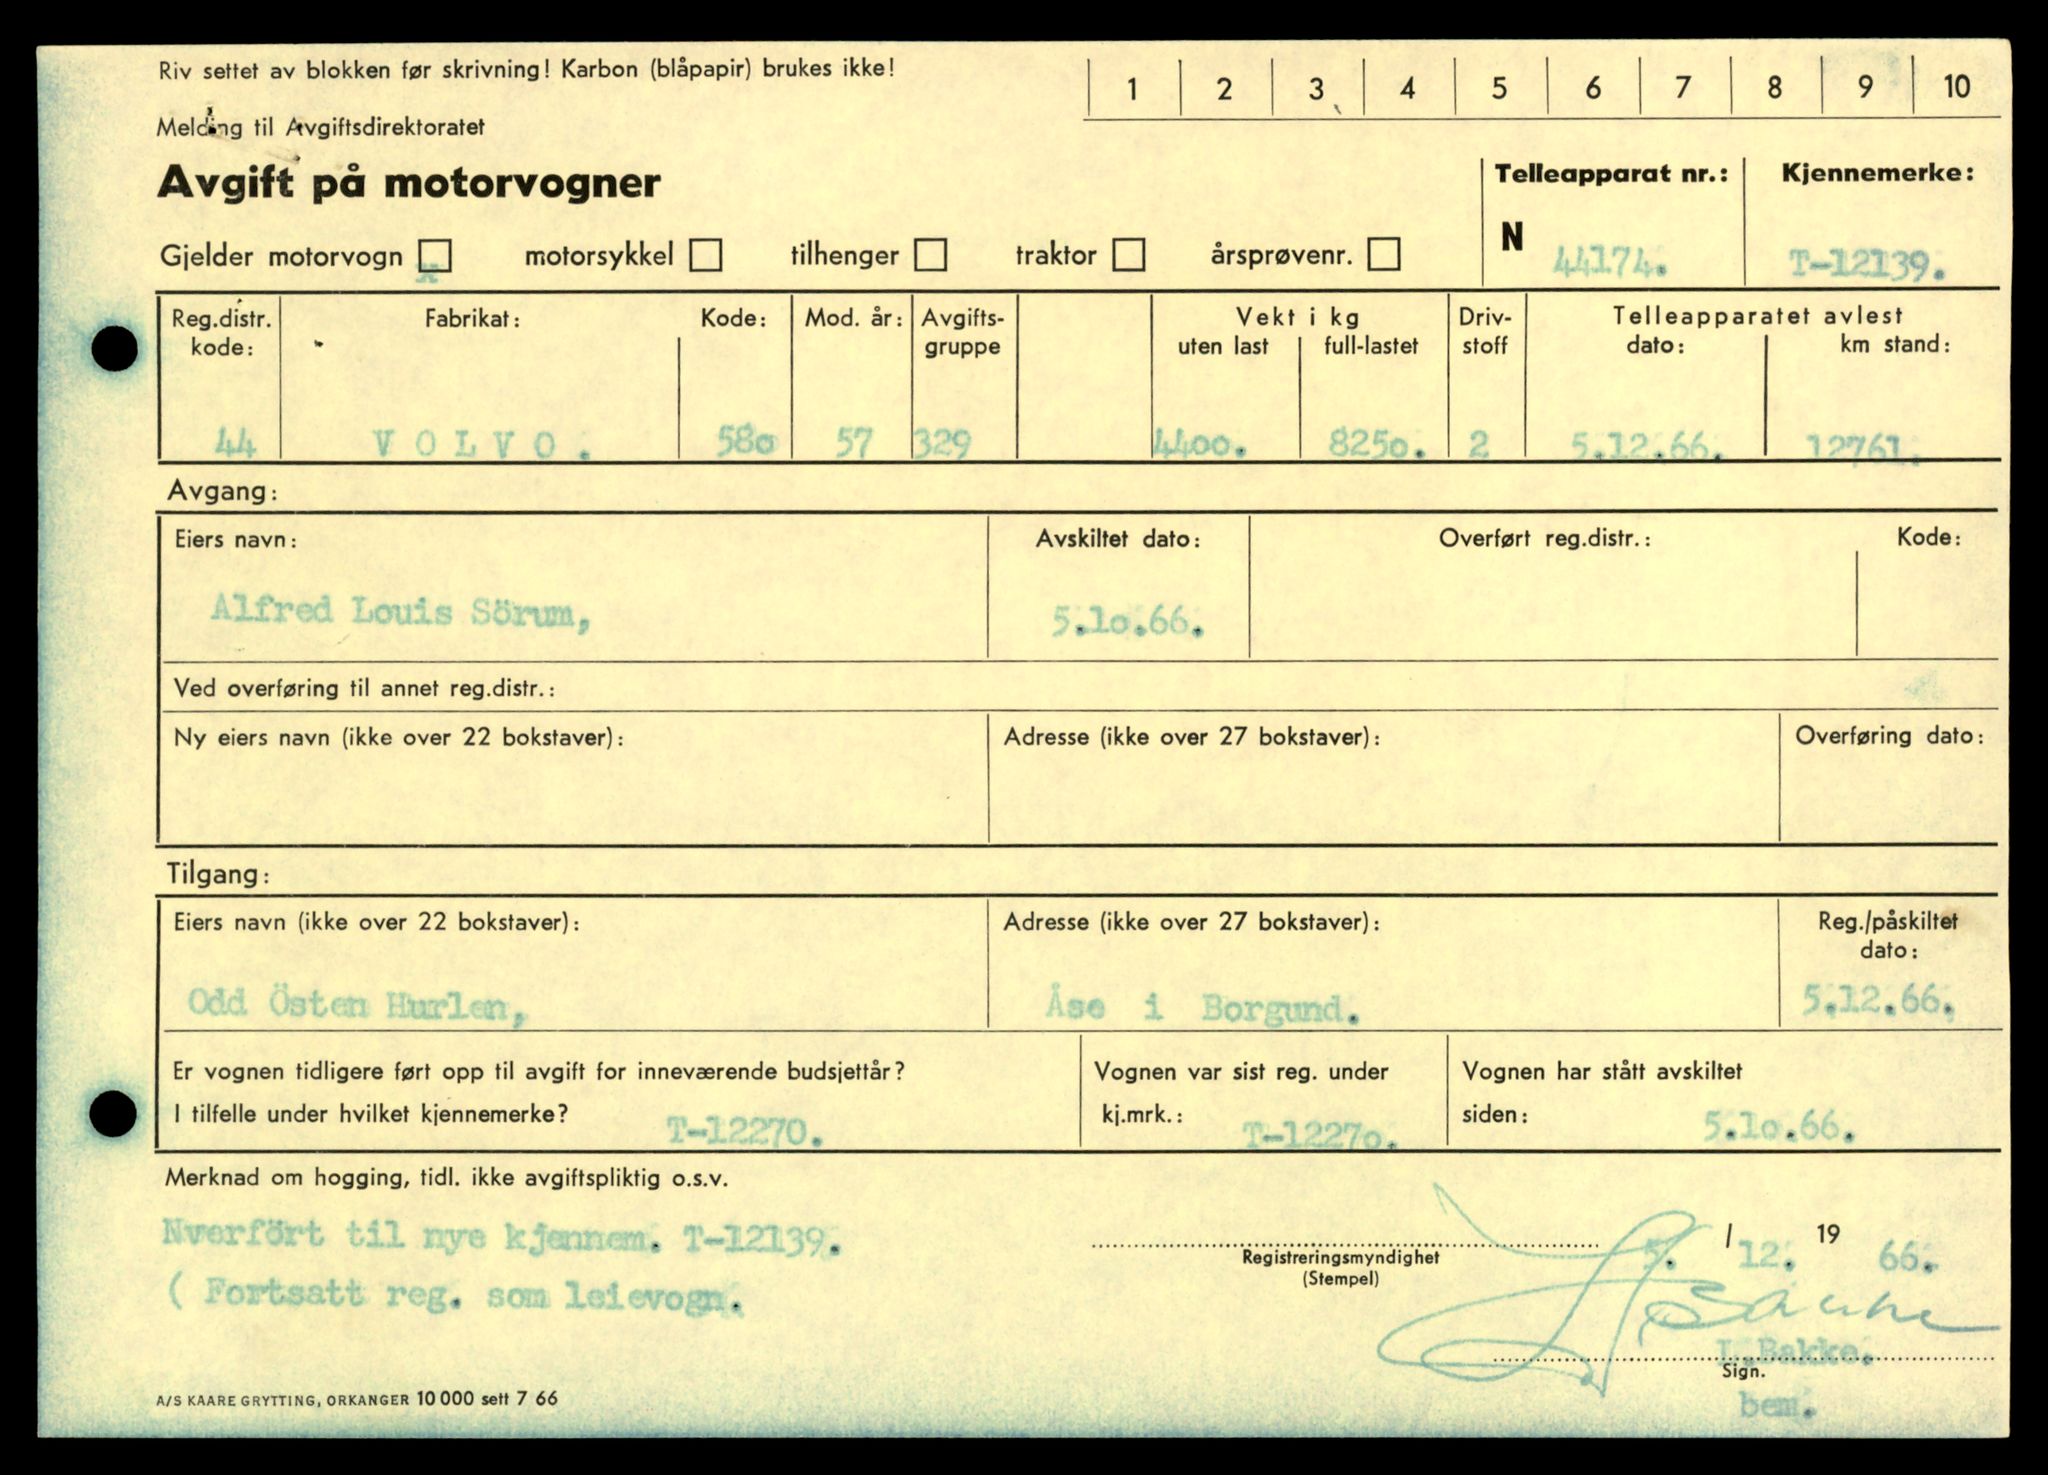 Riv settet av blokken før skrivning! Karbon (blåpapir) brukes ikke!
1 2 3 4 5 6 7 8 9 10
Melding til Avgiftsdirektoratet
Avgift på motorvogner
Telleapparat nr.: Kjennemerke:
Gjelder motorvogn x motorsykkel tilhenger traktor årsprøvenr.
N 44174. T-12139.
Reg.distr. kode: Fabrikat: Kode: Mod. år: Avgifts-gruppe Vekt i kg uten last full-lastet Driv-stoff Telleapparatet avlest dato: km stand:
44 VOLVO. 58o 57 329 44oo. 825o. 2 5.12.66. 12761.
Avgang:
Eiers navn: Avskiltet dato: Overført reg.distr.: Kode:
Alfred Louis Sörum, 5.1o.66.
Ved overføring til annet reg.distr.:
Ny eiers navn (ikke over 22 bokstaver): Adresse (ikke over 27 bokstaver): Overføring dato:
Tilgang:
Eiers navn (ikke over 22 bokstaver): Adresse (ikke over 27 bokstaver): Reg./påskiltet dato:
Odd Östen Hurlen, Åse i Borgund. 5.12.66.
Er vognen tidligere ført opp til avgift for inneværende budsjettår? Vognen var sist reg. under Vognen har stått avskiltet
I tilfelle under hvilket kjennemerke? T-12270. kj.mrk.: T-1227o. siden: 5.1o.66.
Merknad om hogging, tidl. ikke avgiftspliktig o.s.v.
Nverfört til nye kjennem. T-12139.
( Fortsatt reg. som leievogn.
5. / 12. 19 66.
Registreringsmyndighet
(Stempel)
L.Bakke.
Sign.
bem.
A/S KAARE GRYTTING, ORKANGER 10 000 sett 7 66